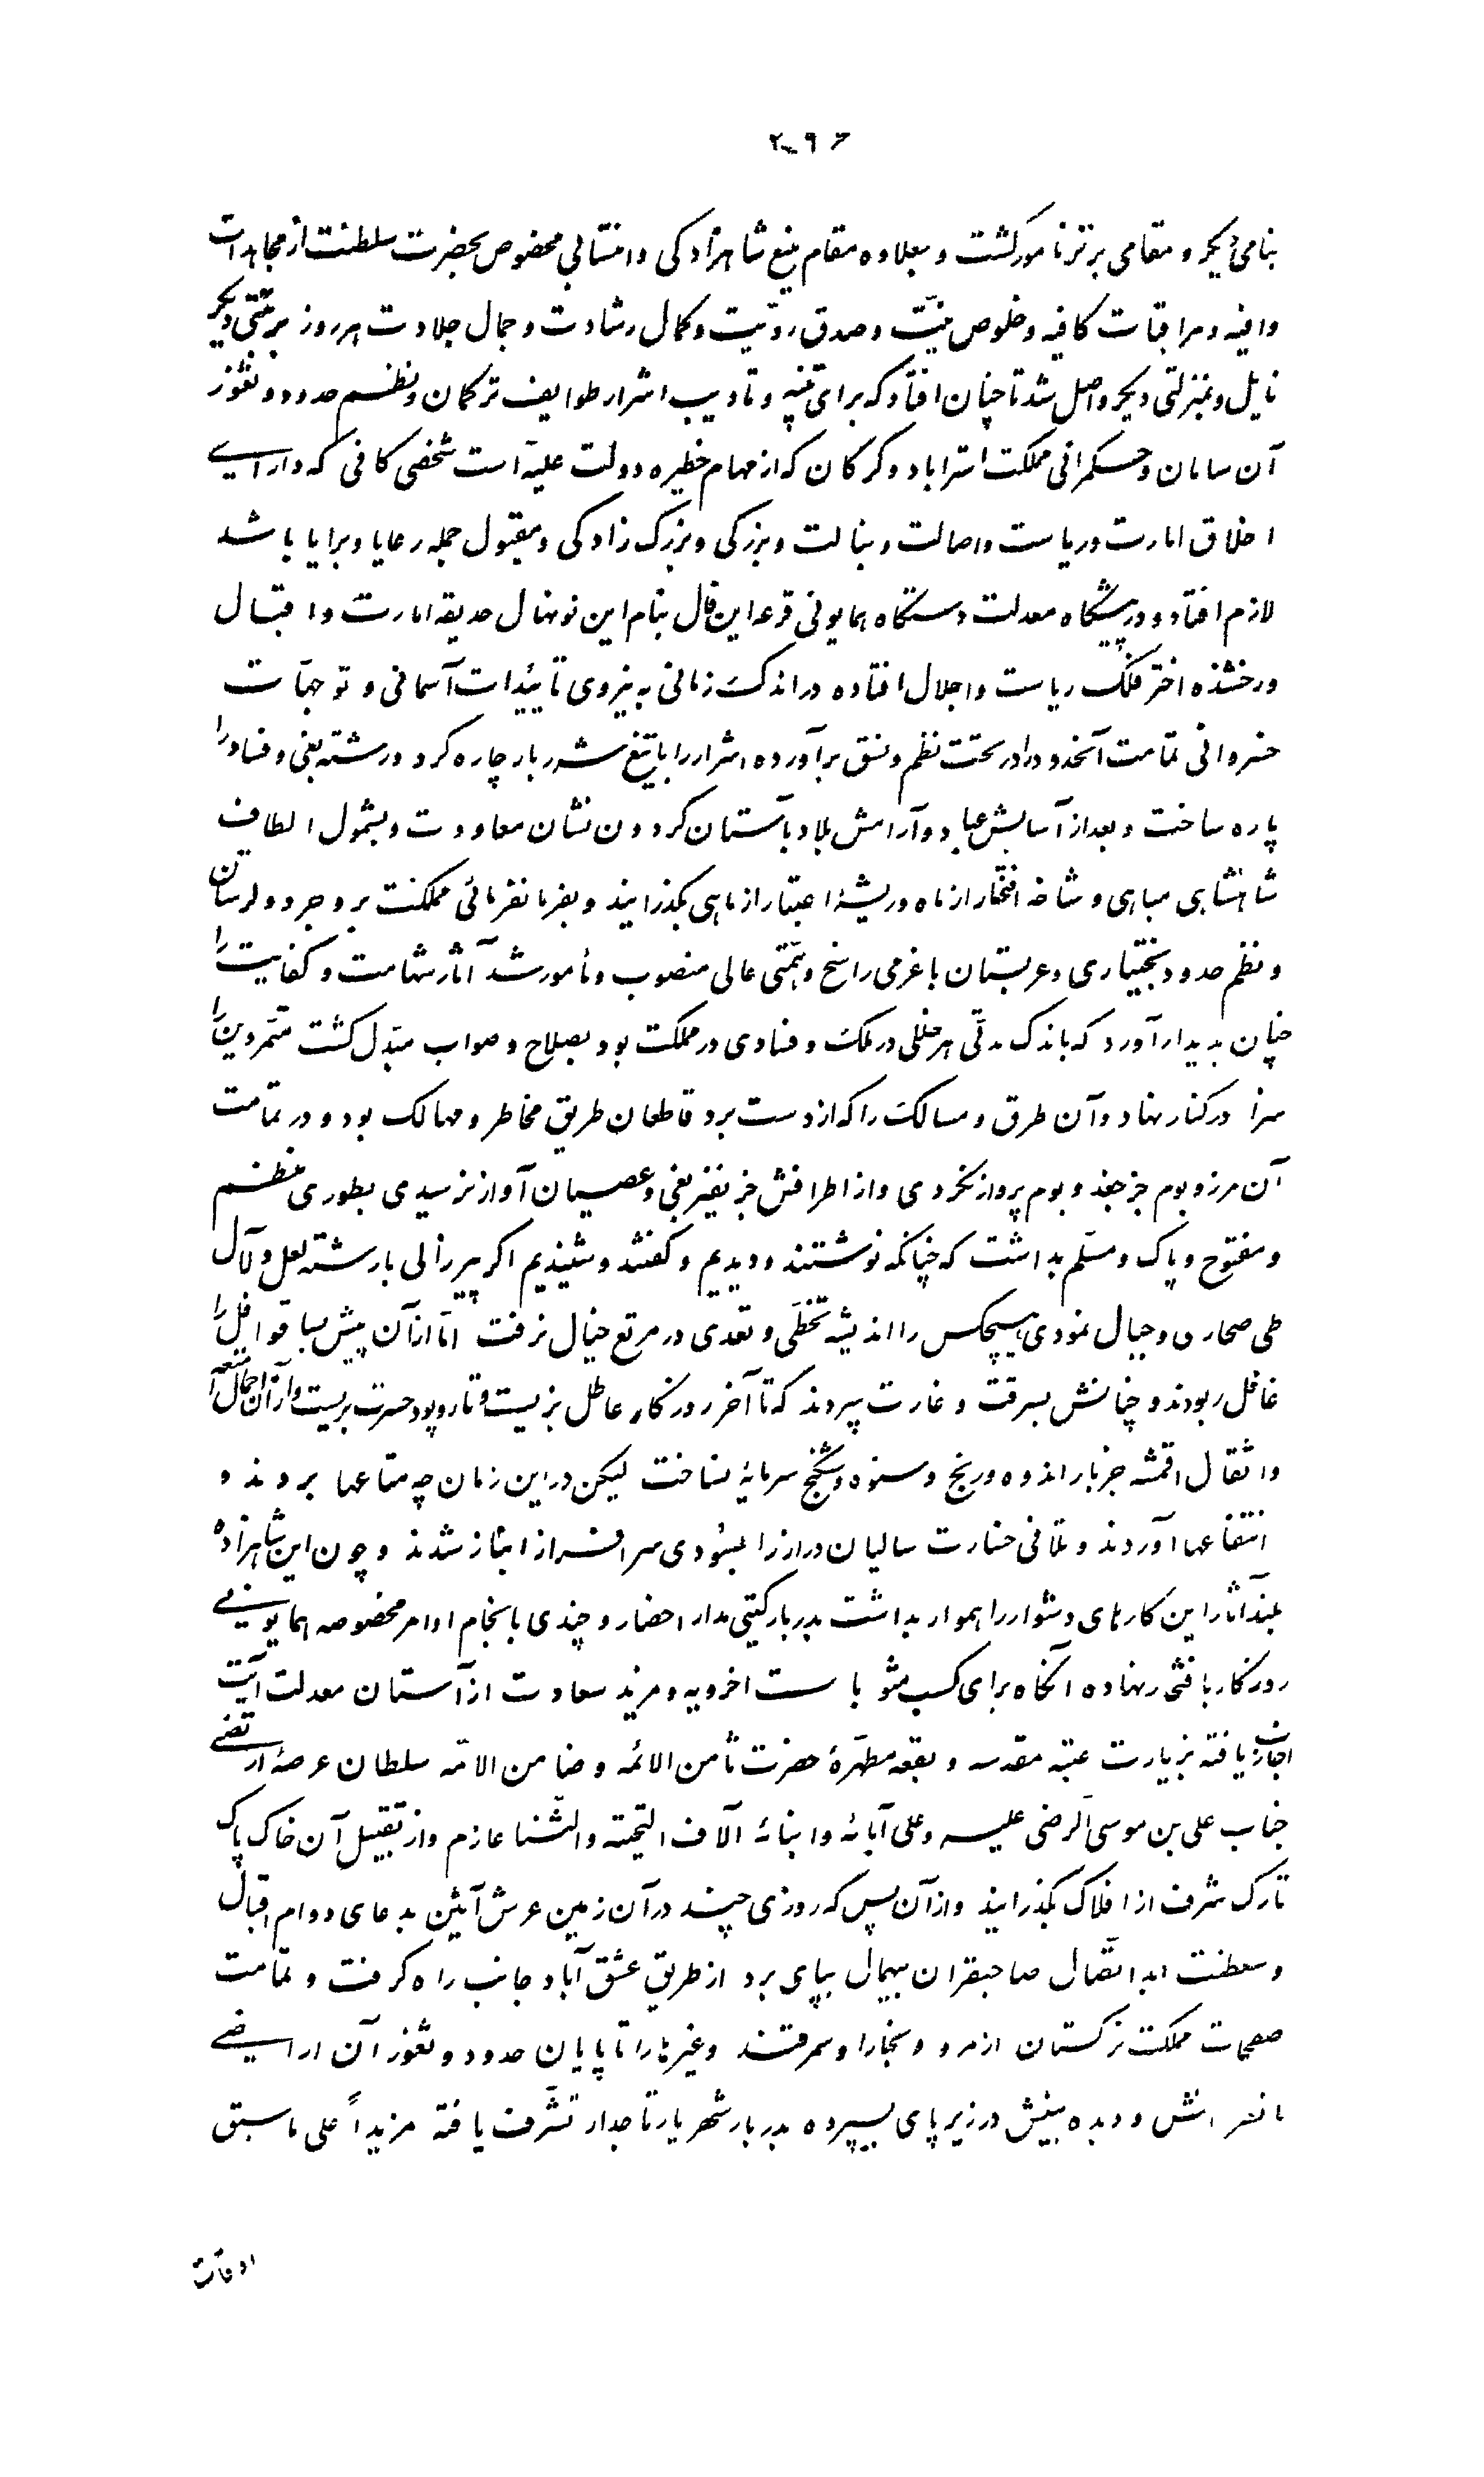 ۲۰۹۶
بنامی دیگر و مقامی برتر نامور گشت و بعلاوه مقام منیع شاهزادگی و انتسابی مخصوص بحضرت سلطنت از مجاهدات
وافیه و مراقبات کافیه و خلوص نیّت و صدق رویّت و کمال رشادت و جمال جلادت هر روز برتبتی دیگر
نایل و بمنزلتی دیگر واصل شد تا چنان افتاد که برای تنبیه و تادیب اشرار طوایف ترکمان و نظم حدود و ثغور
آن سامان و حکمرانی مملکت استراباد و گرگان که از مهام خطیره دولت علیّه است شخصی کافی که دارای
اخلاق امارت و ریاست و اصالت و نبالت و بزرگی و بزرگ زادگی و مقبول جمله رعایا و برایا باشد
لازم افتاد و در پیشگاه معدلت دستگاه همایونی قرعه این فال بنام این نونهال حدیقه امارت و اقبال
و رخشنده اختر فلک ریاست و اجلال افتاده در اندک زمانی به نیروی تاییدات آسمانی و توجهّات
خسروانی تمامت آنحدود را در تحت نظم و نسق برآورده اشرار را با تیغ شرربار چاره کرد و رشته بغی و فساد را
پاره ساخت و بعد از آسایش عباد و آرامش بلاد بآستان گردون نشان معاودت و بشمول الطاف
شاهنشاهی مباهی و شاخه افتخار از ماه و ریشهٔ اعتبار از ماهی بگذرانید و بفرمانفرمائی مملکت بروجرد و لرستان
و نظم حدود بختیاری و عربستان با عزمی راسخ و همّتی عالی منصوب و مأمور شد آثار شهامت و کفایت را
چنان پدیدار آورد که باندک مدتّی هر خللی در ملک و فسادی در مملکت بود بصلاح و صواب مبدّل گشت متمرّدین را
سزا در کنار نهاد و آن طرق و مسالک را که از دست برد قاطعان طریق مخاطر و مهالک بود و در تمامت
آن مرز و بوم جز جغد و بوم پرواز نکردی و از اطرافش جز نفیر بغی و عصیان آواز نرسیدی بطوری منظم
و مفتوح و پاک و مسلّم بداشت که چنانکه نوشتند و دیدیم و گفتند و شنیدیم اگر پیرزالی با رشته لعل و لآل
طی صحاری و جبال نمودی هیچکس را اندیشه تخطّی و تعدی در مرتع خیال نرفت امّا از آن پیش بسا قوافل را
غافل ربودند و چنانش بسرقت و غارت سپردند که تا آخر روزگار عاطل بزیست و تار و پود حسرت بریست و از آن احمال امتعه
و اثقال اقمشه جز بار اندوه و رنج و ستوه و شکنج سرمایهٔ نساخت لیکن در این زمان چه متاعها بردند و
انتفاعها آوردند و تلافی خسارت سالیان دراز را بسودی سرافراز انباز شدند و چون این شاهزاده
بلندآثار این کارهای دشوار را هموار بداشت بدربار گیتی مدار احضار و چندی بانجام اوامر مخصوصه همایونی
روزگار با فخر نهاده آنگاه برای کسب مثوبات اخرویه و مزید سعادت از آستان معدلت آیت
اجازت یافته بزیارت عتبه مقدسه و بقعه مطهّرهٔ حضرت ثامن الائمه و ضامن الامّه سلطان عرصهٔ ارتضی
جناب علی بن موسی الرضی علیه و علی آبائه و ابنائه آلاف التحیّته والثّنا عازم و از تقبیل آن خاک پاک
تارک شرف از افلاک بگذرانید و از آن پس که روزی چند در آن زمین عرش آئین بدعای دوام اقبال
و سلطنت ابد اتّصال صاحبقران بیهمال بپای برد از طریق عشق آباد جانب راه گرفت و تمامت
صفحات مملکت ترکستان از مرو و بخارا و سمرقند و غیرها را تا پایان حدود و ثغور آن اراضی
با نظر دانش و دیده بینش در زیر پای بسپرده بدربار شهریار تاجدار تشرّف یافته مزیداً علی ما سبق